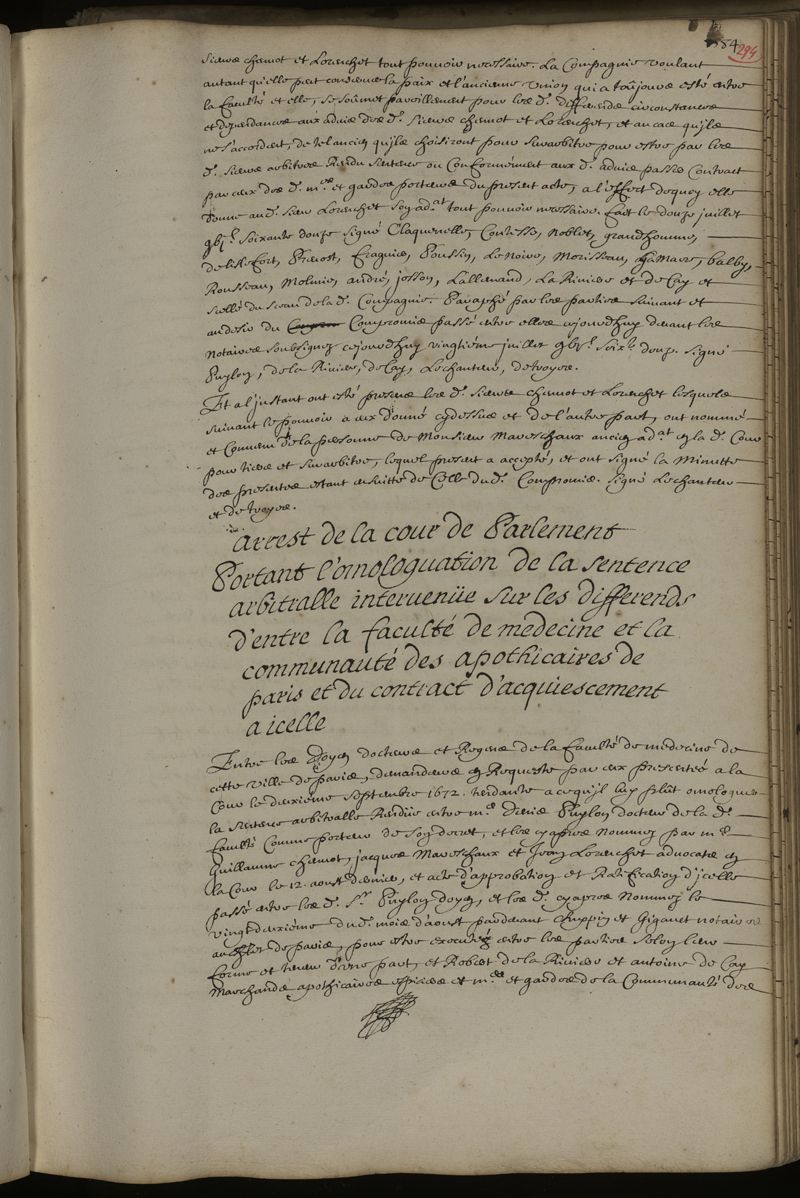 294
Sieurs chemot et Lorenchet tout pouvoir necessaire. La Compagnie voulant
autant qu'elle peut conserver la paix et l'ancienne union qui a toûjours esté entre
la faculté et elle, se soûmet pareillement pour les d. differends circonstances
et dependances aux advis des d. Sieurs chemot et Lorenchet, et en cas qu'ils
ne s'accordent, de tel ancien qu'ils choisiront pour surarbitre pour estre par les
d. Sieurs arbitres Rendu Sentence ou Conformément aux d. advis passé Contract
par eux des d. m.es et gardes porteurs du present acte, a l'effect de quoy elle
donne au d. Sieur Lorenchet son ad.at tout pouvoir necessaire. fait le douze juillet
Soixante douze signé Claquenelle, Contesse, Noblet, grandhomme,
de lisle fort, Prevost, Eragnice, Poussin, Le Noire, Morisseau, balby,
Rousseau, Molinier, andré, josson, Lallemand, La Riviere et de Cay et
scellé du sceau de la d. Compagnie. Paraphé par les parties suivant et
au desir du Compromis passé entre elles cejourd'huy devant les
notaires soubsignez cejourd'huy vingtieme juillet Soix.te douze. signé
Puylon, de la Riviere, de Cay, Lechanteur, de troyes.
Et a l'instant ont esté presens les d. Sieurs chemot et Lorenchet lesquels
suivant le pouvoir a eux donné cy dessus et de l'autre part, ont nommé
et convenu de la personne de Monsieur Mareschaux ancien ad.at en la d. Cour
pour tiers et surarbitre, lequel present a accepté, et ont signé la Minutte
des presentes estant ensuitte de Celle du d. Compromis. signé Lechanteur
et de troyes.
Arrest de la cour de Parlement
Portant l'omologuation de la sentence
arbitralle intervenüe sur les differends
d'entre la faculté de medecine et la
communauté des apothicaires de
paris et du contract d'acquiescement
a icelle
Entre les Doyen docteurs et Regens de la faculté de medecine de
cette ville de paris, demandeurs en Requeste par eux presentée a la
Cour le deuxiéme septembre 1672. tendante a ce qu'il luy plût omologuer
la sentence arbitralle Rendüe entre m.e Denis Puylon docteur de la d.
faculté Comme porteur de son decret, et les cy apres Nommez par m.e
Guillaume chemot, jacques Mareschaux et Jean Lorenchet advocats en
la Cour le 12. aoust dernier, et acte d'approbation et Ratification d'icelle
passé entre les d. S.r Puylon doyen, et les d. cy apres Nommez le
vingt deuxiéme du d. mois d'aoust pardevant Chuppin et Gigault notaires
au chlet de paris, pour estre executéz entre les parties selon leur
forme et teneur d'une part, et Robert de la Riviere et antoine de Cay
Marchands apothicaires espiciers et m.es et gardes de la Communauté des